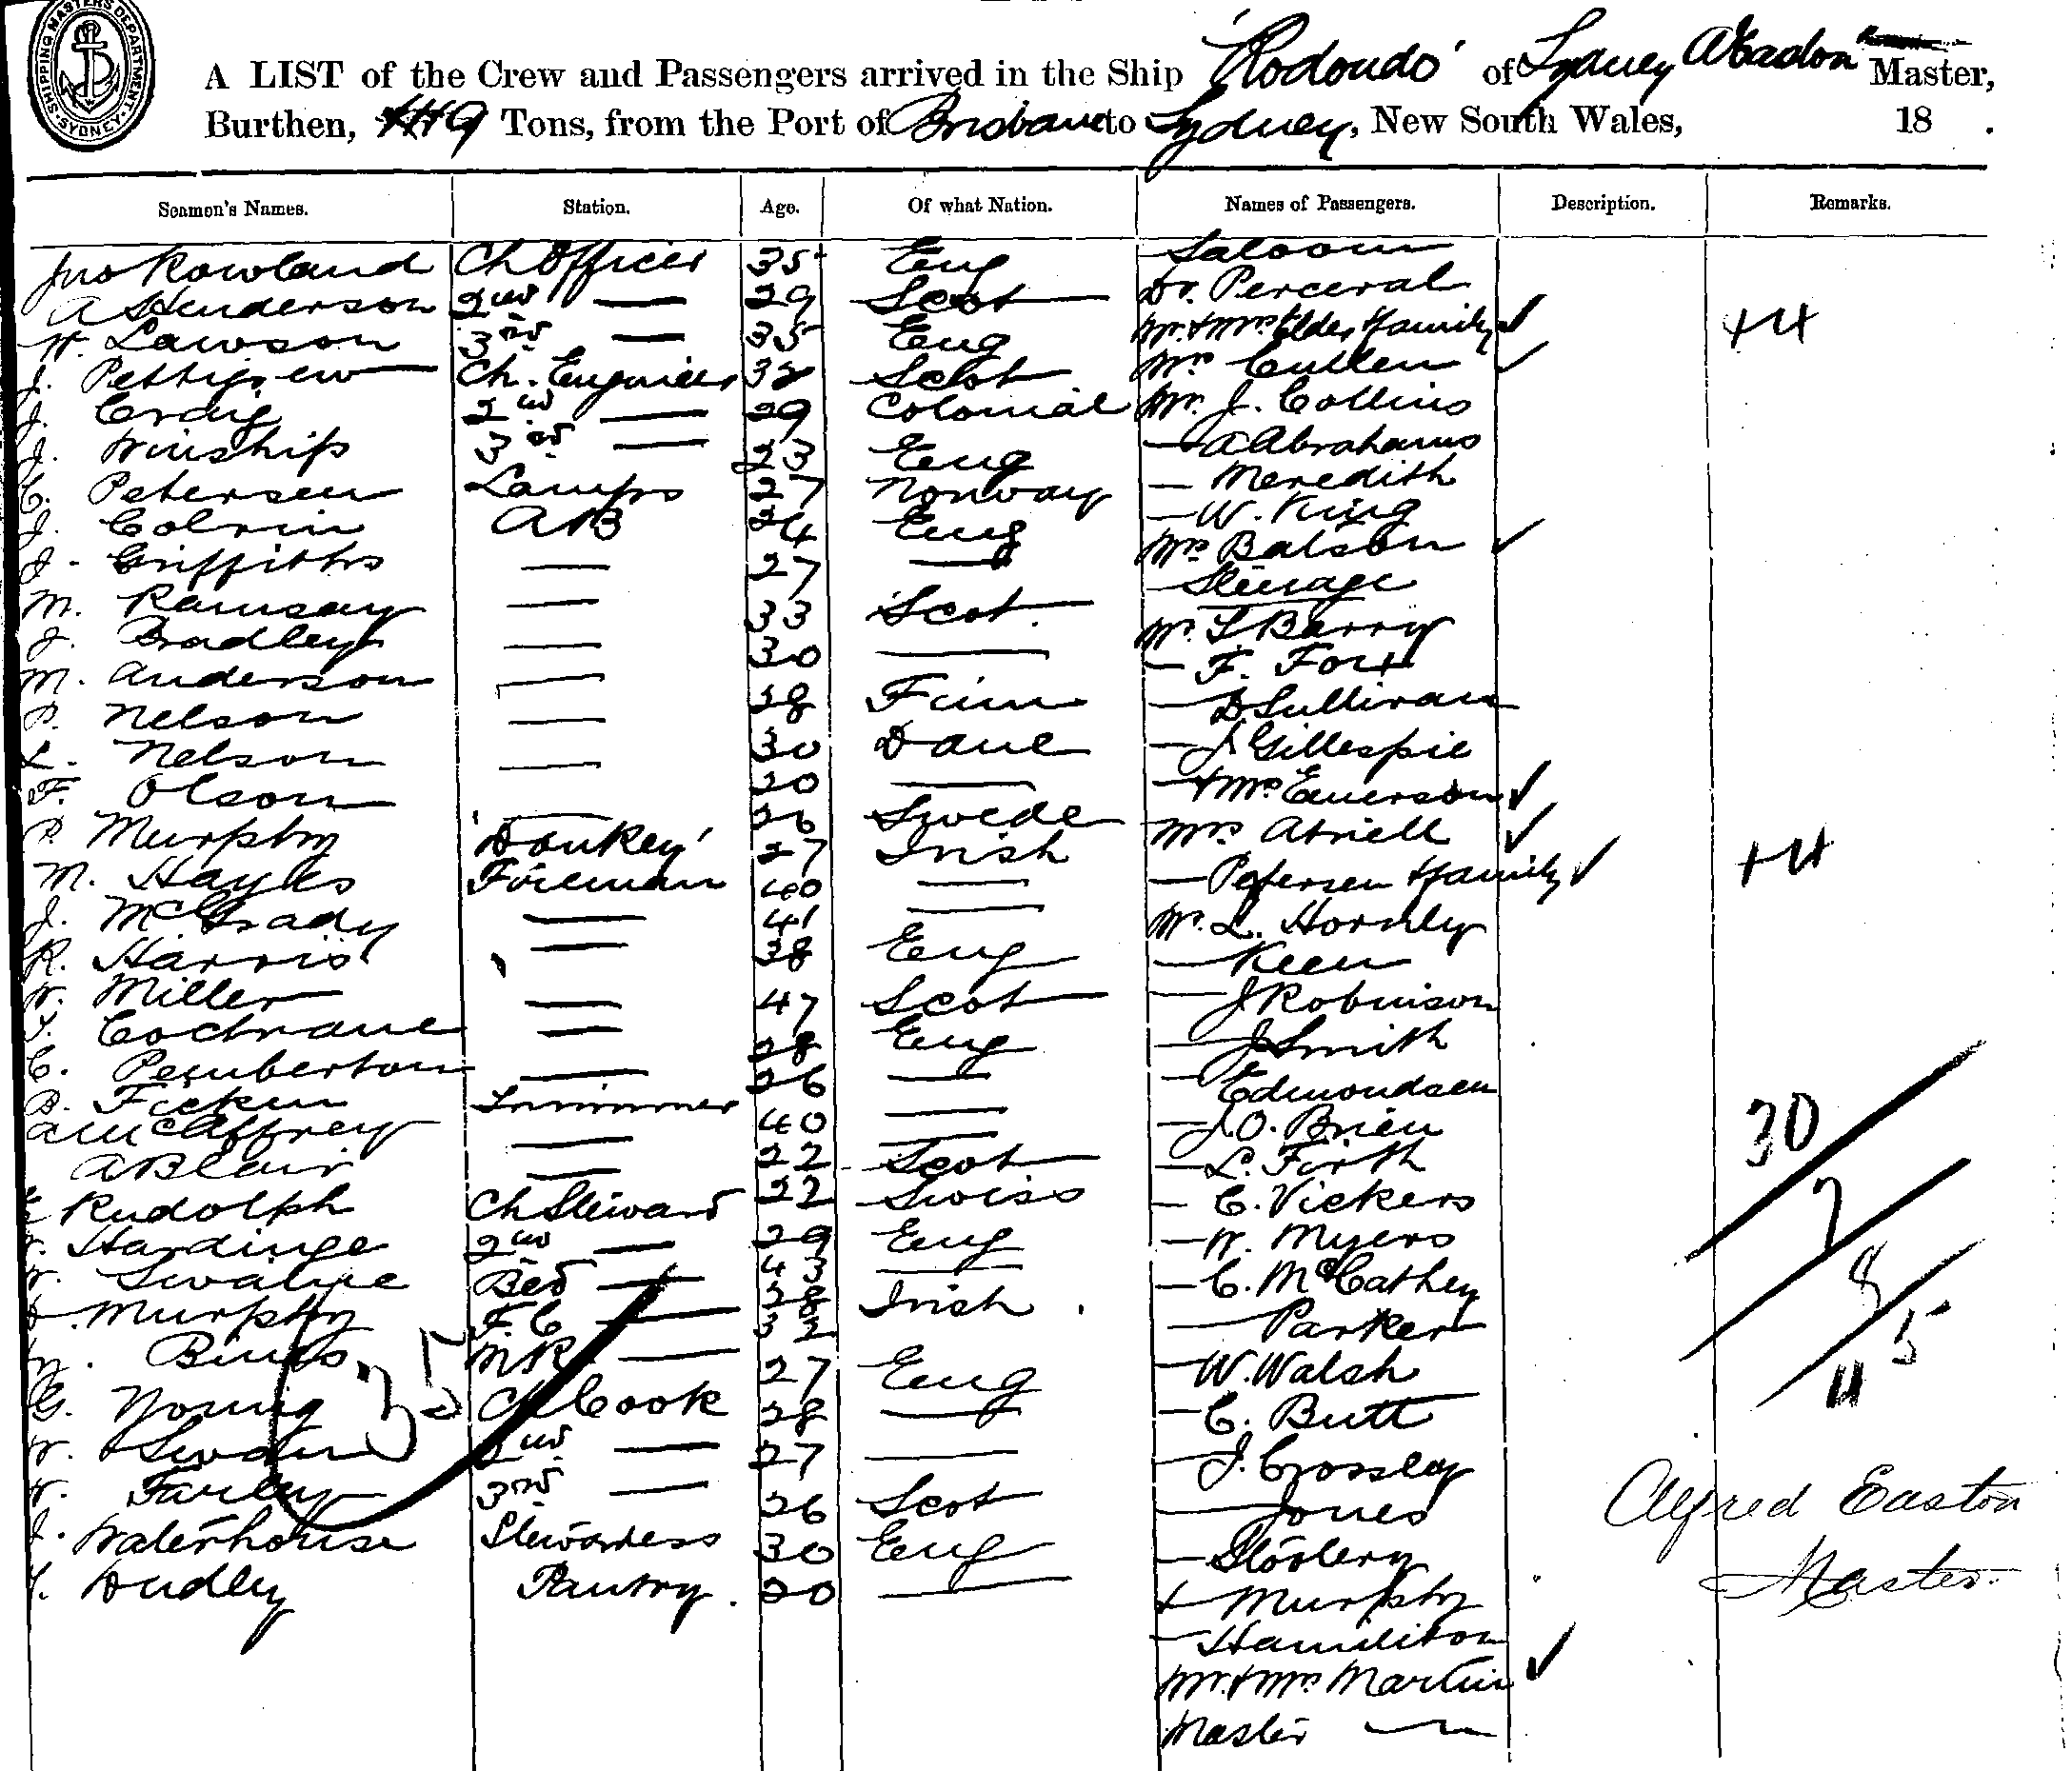 SHIPPING MASTERS DEPARTMENT. SYDNEY.
A LIST of the Crew and Passengers arrived in the Ship 'Rodondo' of Sydney A Eadon Master,
Burthen, Tons, from the Port of Brisbane to Sydney, New South Wales, 18 .
Seamen's Names. Station. Age. Of what Nation. Names of Passengers. Description. Remarks.
Jno Rowland Ch Officer 35 Eng Saloon
A Henderson 2nd — 29 Scot Dr. Perceval
W. Lawson 3rd — 35 Eng Mr & Mrs Elder & family ✓ +4
J. Pettigrew Ch. Engineer 32 Scot Mrs Cullen ✓
J. Craig 2nd — 29 Colonial Mr. J. Collins
J. Winship 3rd — 23 Eng — A Abrahams
C. Petersen Lamps 27 Norway — Meredith
J. Colvin AB 24 Eng — W. King
J. Griffiths — 27 — Mrs Batson ✓
M. Ramsay — 33 Scot. Steerage
J. Bradley — 30 — Mr. T Barry
M. Anderson — 28 Finn — F. Fox
P. Nelson — 30 Dane — D Sullivan
L. Nelson — 20 — — J Gillespie
F. Olson — 26 Swede — & Mrs Emerson ✓
P. Murphy 'Donkey' 27 Irish Mrs Atriell ✓
M. Hayes Fireman 40 — — Petersen & family ✓ +4
J. McGrady — 41 — Mr. L. Hornly
R. Harris — 38 Eng — Keen
W. Miller — 47 Scot — J Robinson
T. Cochrane — 28 Eng — J Smith
C. Pemberton — 26 — — Edmondsen
B. Ficken Trimmer 40 — — J O. Brien
A McCaffrey — 22 — — L. Firth
A Blair — 22 Scot — C. Vickers
Rudolph Ch Steward 29 Swiss — W. Myers
Hardinge 2nd — 43 Eng — C. McCathey
W. Swalue Bed — 28 — — Parker
Murphy F.C — 32 Irish. — W. Walsh
Binns MR — 27 Eng — C. Butt
G. Young Ch Cook 28 — — J. Crossley
W. Swan 2nd — 27 — — Jones
W. Farley 3rd — 26 Scot —
J. Waterhouse Stewardess 30 Eng & Murphy
T. Dudley Pantry. 20 — — Hamilton
Mr. & Mrs Martin ✓
Master —
35
30
7
8
5
Alfred Easton
Master.